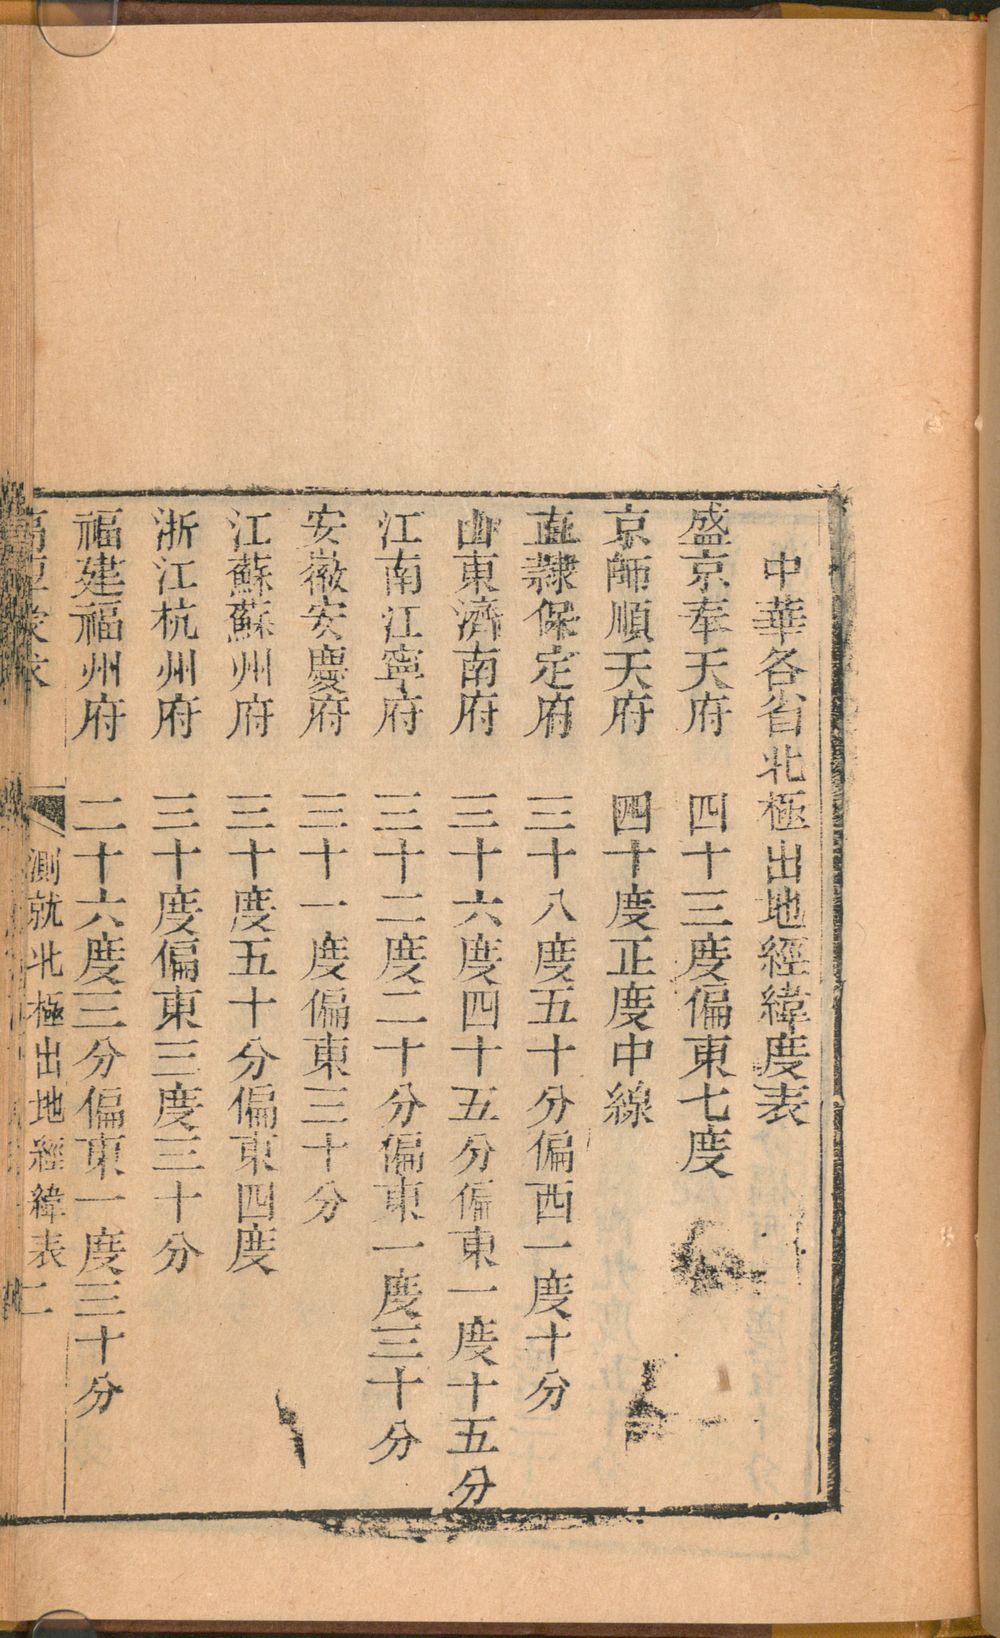 中華各省北極出地經緯度表
盛京奉天府 四十三度偏東七度
京師順天府 四十度正度中線
直隸保定府 三十八度五十分偏西一度十分
山東濟南府 三十六度四十五分偏東一度十五分
江南江寧府 三十二度二十分偏東一度三十分
安徽安慶府 三十一度偏東三十分
江蘇蘇州府 三十度五十分偏東四度
浙江杭州府 三十度偏東三度三十分
福建福州府 二十六度三分偏東一度三十分
測就北極出地經緯表 二